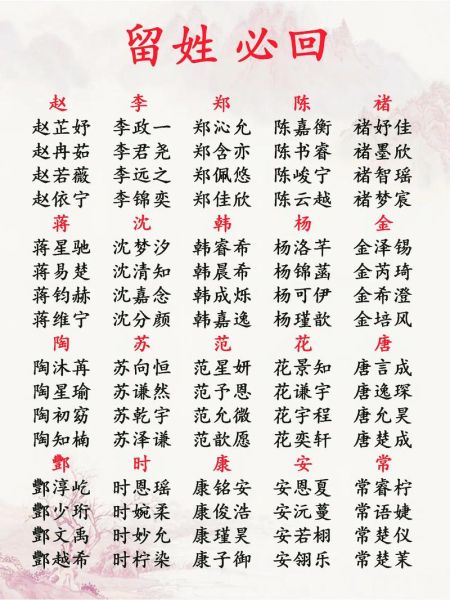 留姓 必回
赵 李 郑 陈 褚
赵芷妤 李政一 郑沁允 陈嘉衡 褚妤佳
赵冉茹 李君尧 郑含亦 陈书睿 褚墨欣
赵若薇 李远之 郑佩悠 陈峻宁 褚智瑶
赵依宁 李锦奕 郑佳欣 陈云越 褚梦宸
蒋 沈 韩 杨 金
蒋星驰 沈梦汐 韩睿希 杨洛芊 金泽锡
蒋易楚 沈清知 韩晨希 杨锦菡 金芮琦
蒋钧赫 沈嘉念 韩成烁 杨可伊 金希澄
蒋维宁 沈分颜 韩嘉逸 杨瑾歆 金培风
陶 苏 范 花 唐
陶沐苒 苏向恒 范星妍 花景知 唐言成
陶星瑜 苏谦然 范予恩 花谦宇 唐逸琛
陶初窈 苏乾宇 范允微 花宇程 唐允昊
陶知楠 苏泽谦 范歆愿 花奕轩 唐楚成
酆 时 康 安 常
酆淳屹 时恩瑶 康铭安 安恩夏 常睿柠
酆少珩 时婉柔 康俊浩 安沅蔓 常语婕
酆文禹 时妙允 康瑾昊 安若栩 常楚仪
酆越希 时柠染 康子御 安翎乐 常楚茉